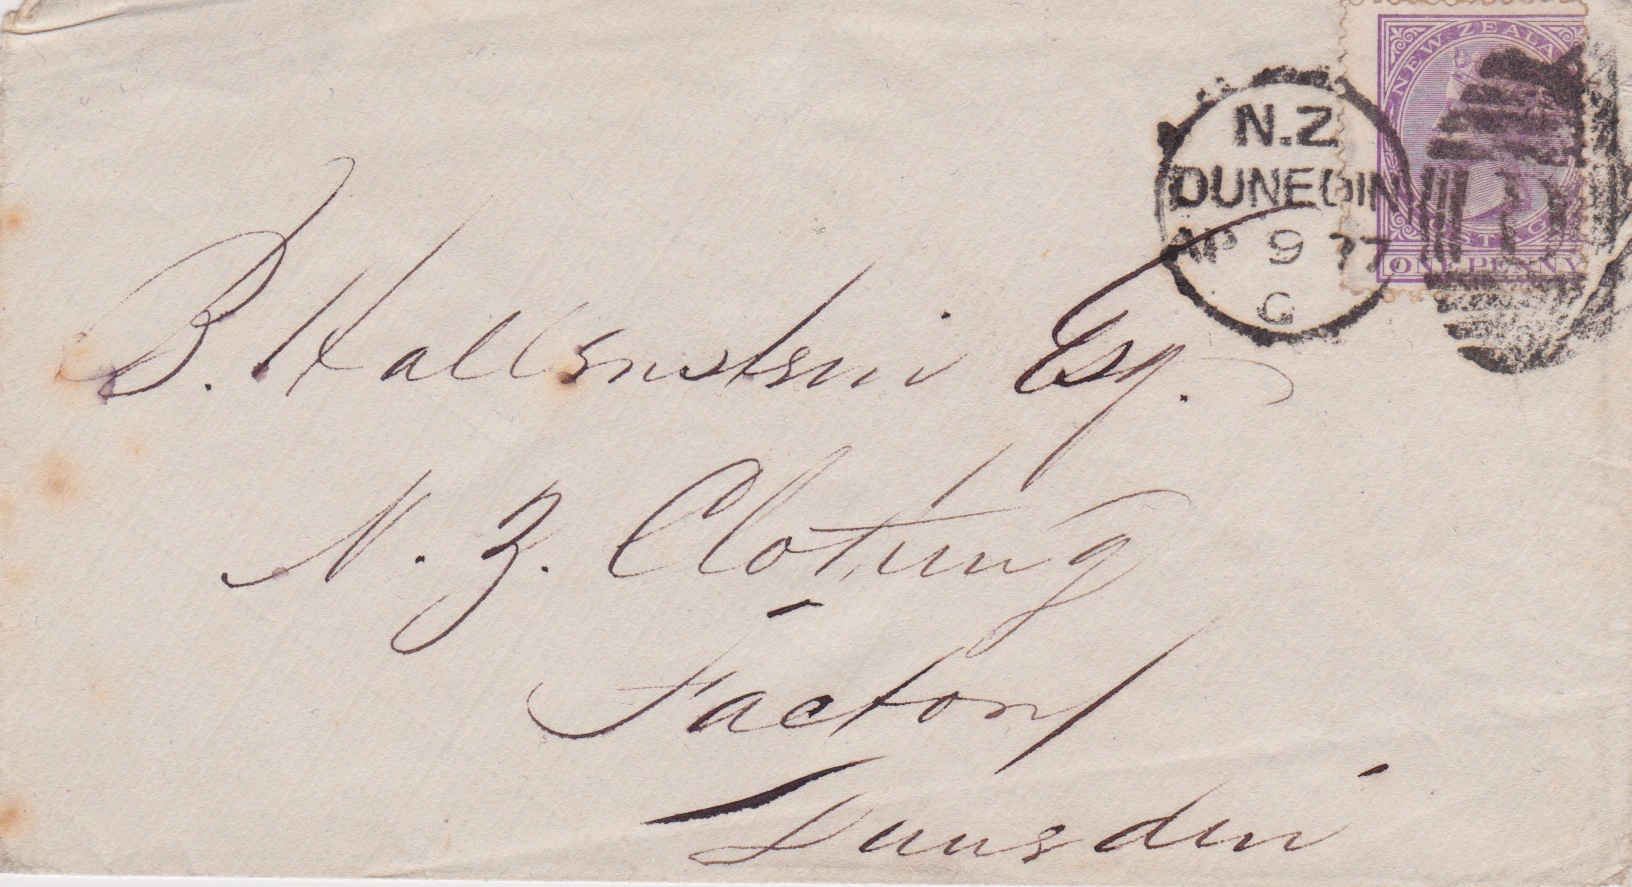 NEW ZEALA
POSTAGE
ONE PENNY
N.Z
DUNEDIN
AP 9 77
C
B. Hallenstein Esq.
N. Z. Clothing
Factory
Dunedin